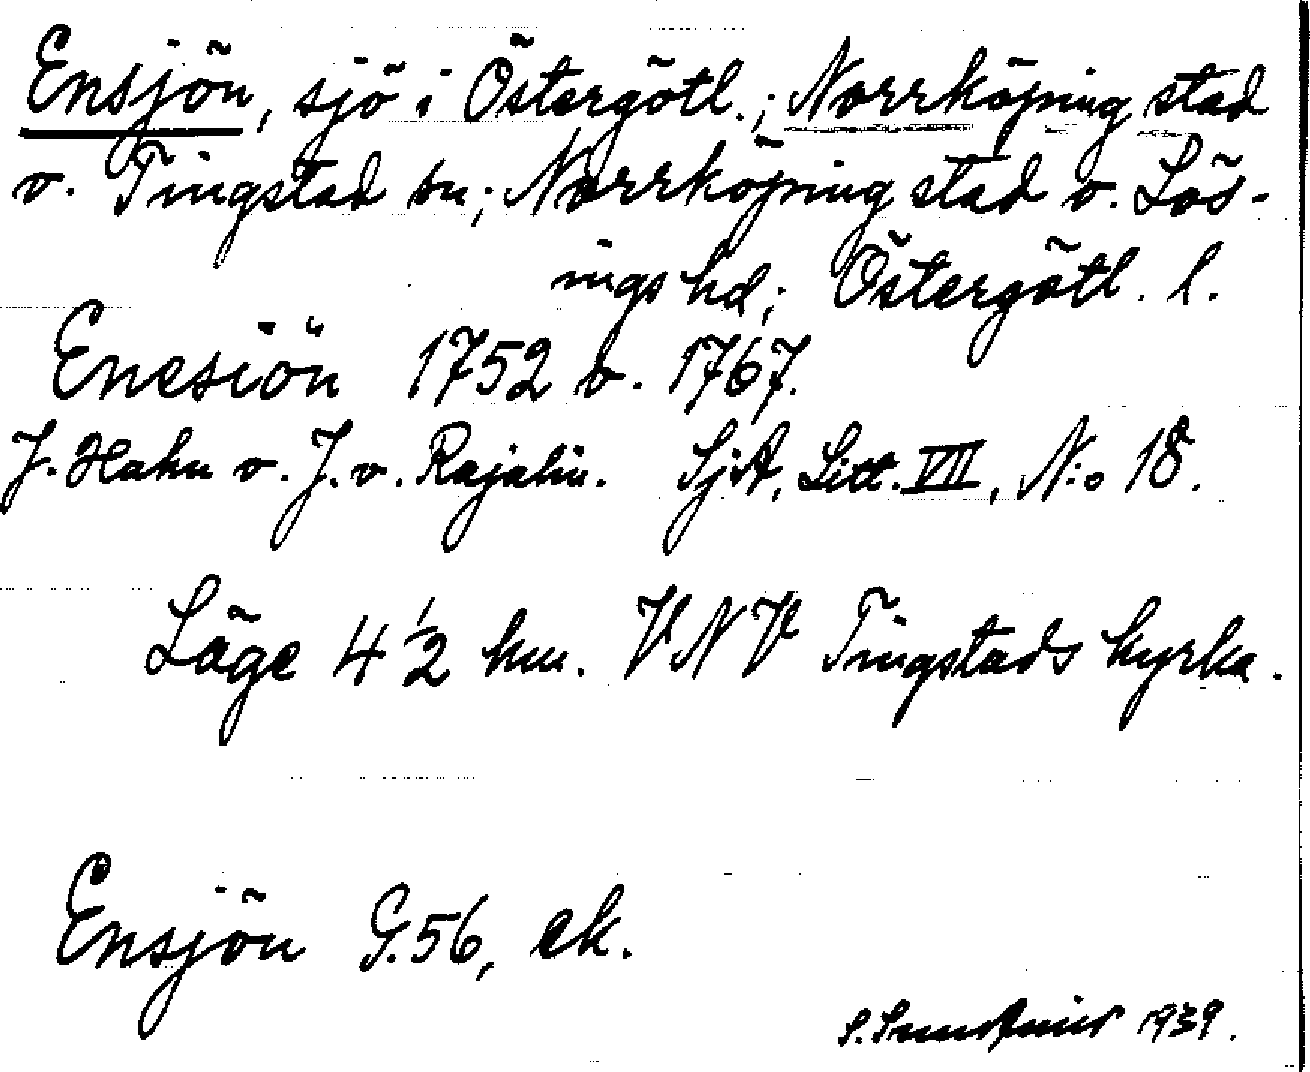 Ensjön, sjö i Östergötl.; Norrköping stad
o. Tingstad sn; Norrköping stad o. Lös-
ings hd; Östergötl. l.
Enesiön 1752 o. 1767.
J. Hahn o. J. v. Rajalin. SjA, Litt. VII, N:o 18.
Läge 4 1/2 km. VNV Tingstads kyrka.
Ensjön G.56, ek.
S. 1939.